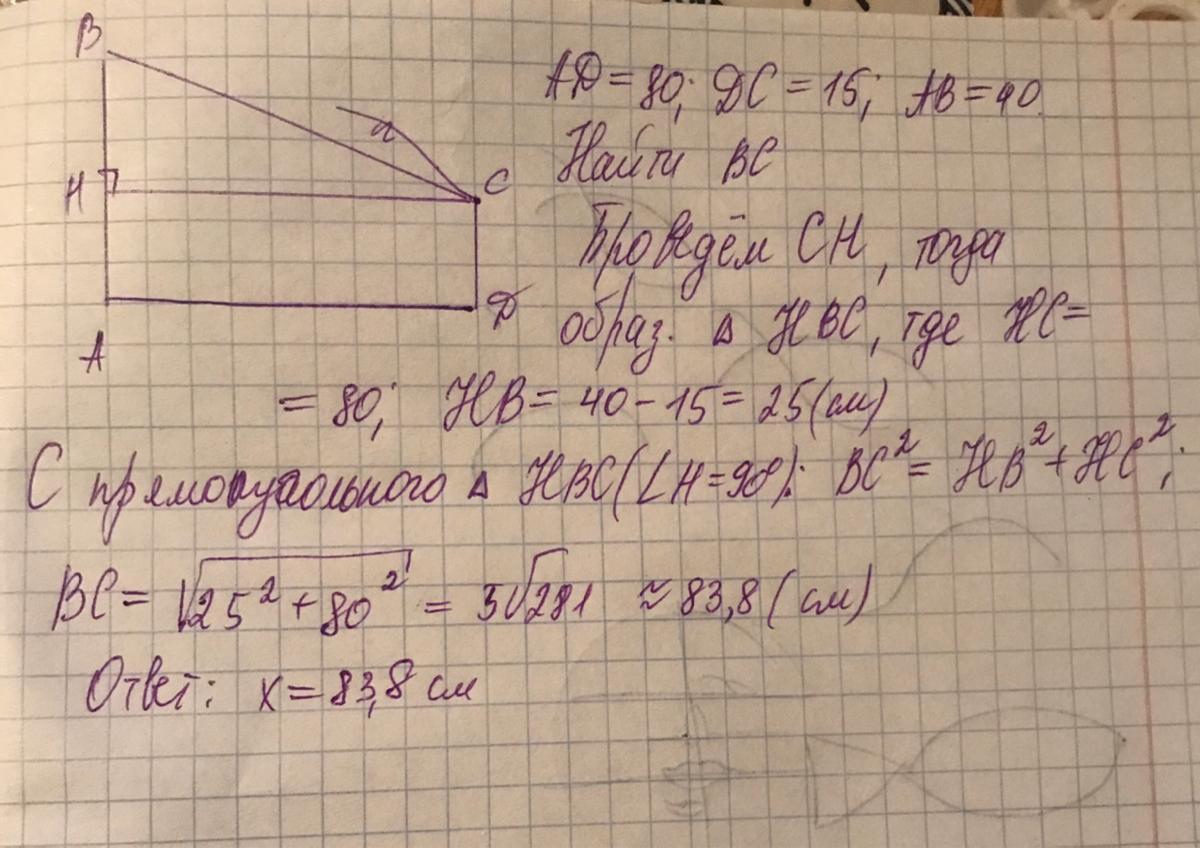 B
H
C
A
D
α
AD = 80; DC = 15; AB = 40.
Найти BC
Проведём CH, тогда
образ. △ HBC, где HC =
= 80; HB = 40 - 15 = 25 (см)
С прямоугольного △ HBC (∠H = 90°): BC² = HB² + HC²;
BC = √25² + 80² = 5√281 ≈ 83,8 (см)
Ответ: x = 83,8 см